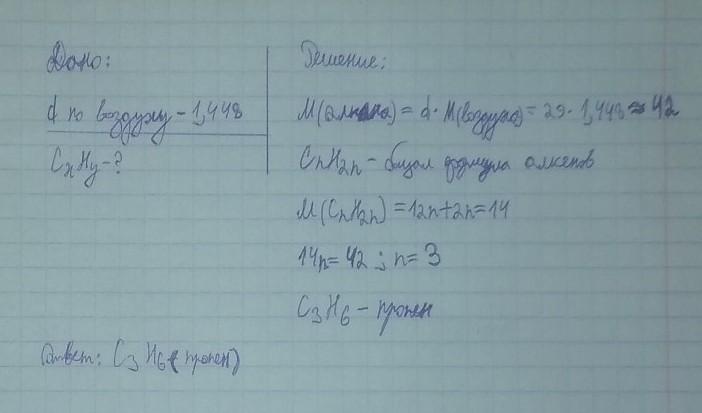 Дано:
d по воздуху - 1,448
CxHy - ?
Решение:
M(алкена) = d · M(воздуха) = 29 · 1,448 ≈ 42
CnH2n - общая формула алкенов
M(CnH2n) = 12n+2n=14
14n = 42 ; n = 3
C3H6 - пропен
Ответ: C3H6 (пропен)